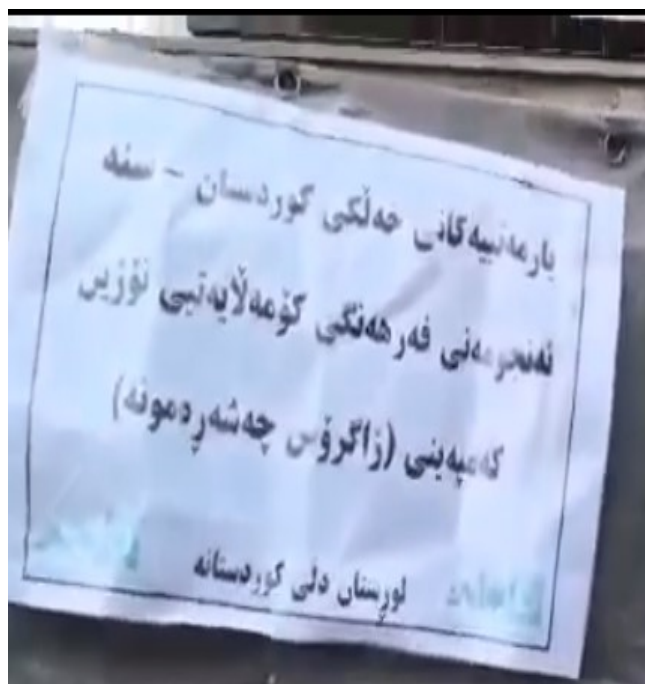 یارمەتییەکانی خەڵکی کوردستان – سنە
ئەنجومەنی فەرهەنگی کۆمەڵایەتیی نۆژین
کەمپەینی (زاگرۆس چەشەڕەمونە)
لوڕستان دڵی کوردستانە